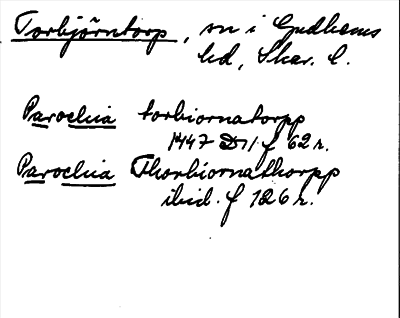 Torbjörntorp, sn i Gudhems
hd, Skar. l.
Parochia torbiornatorpp
1447 D 11 f 62 r.
Parochia Thorbiornathorpp
ibid. f 126 r.